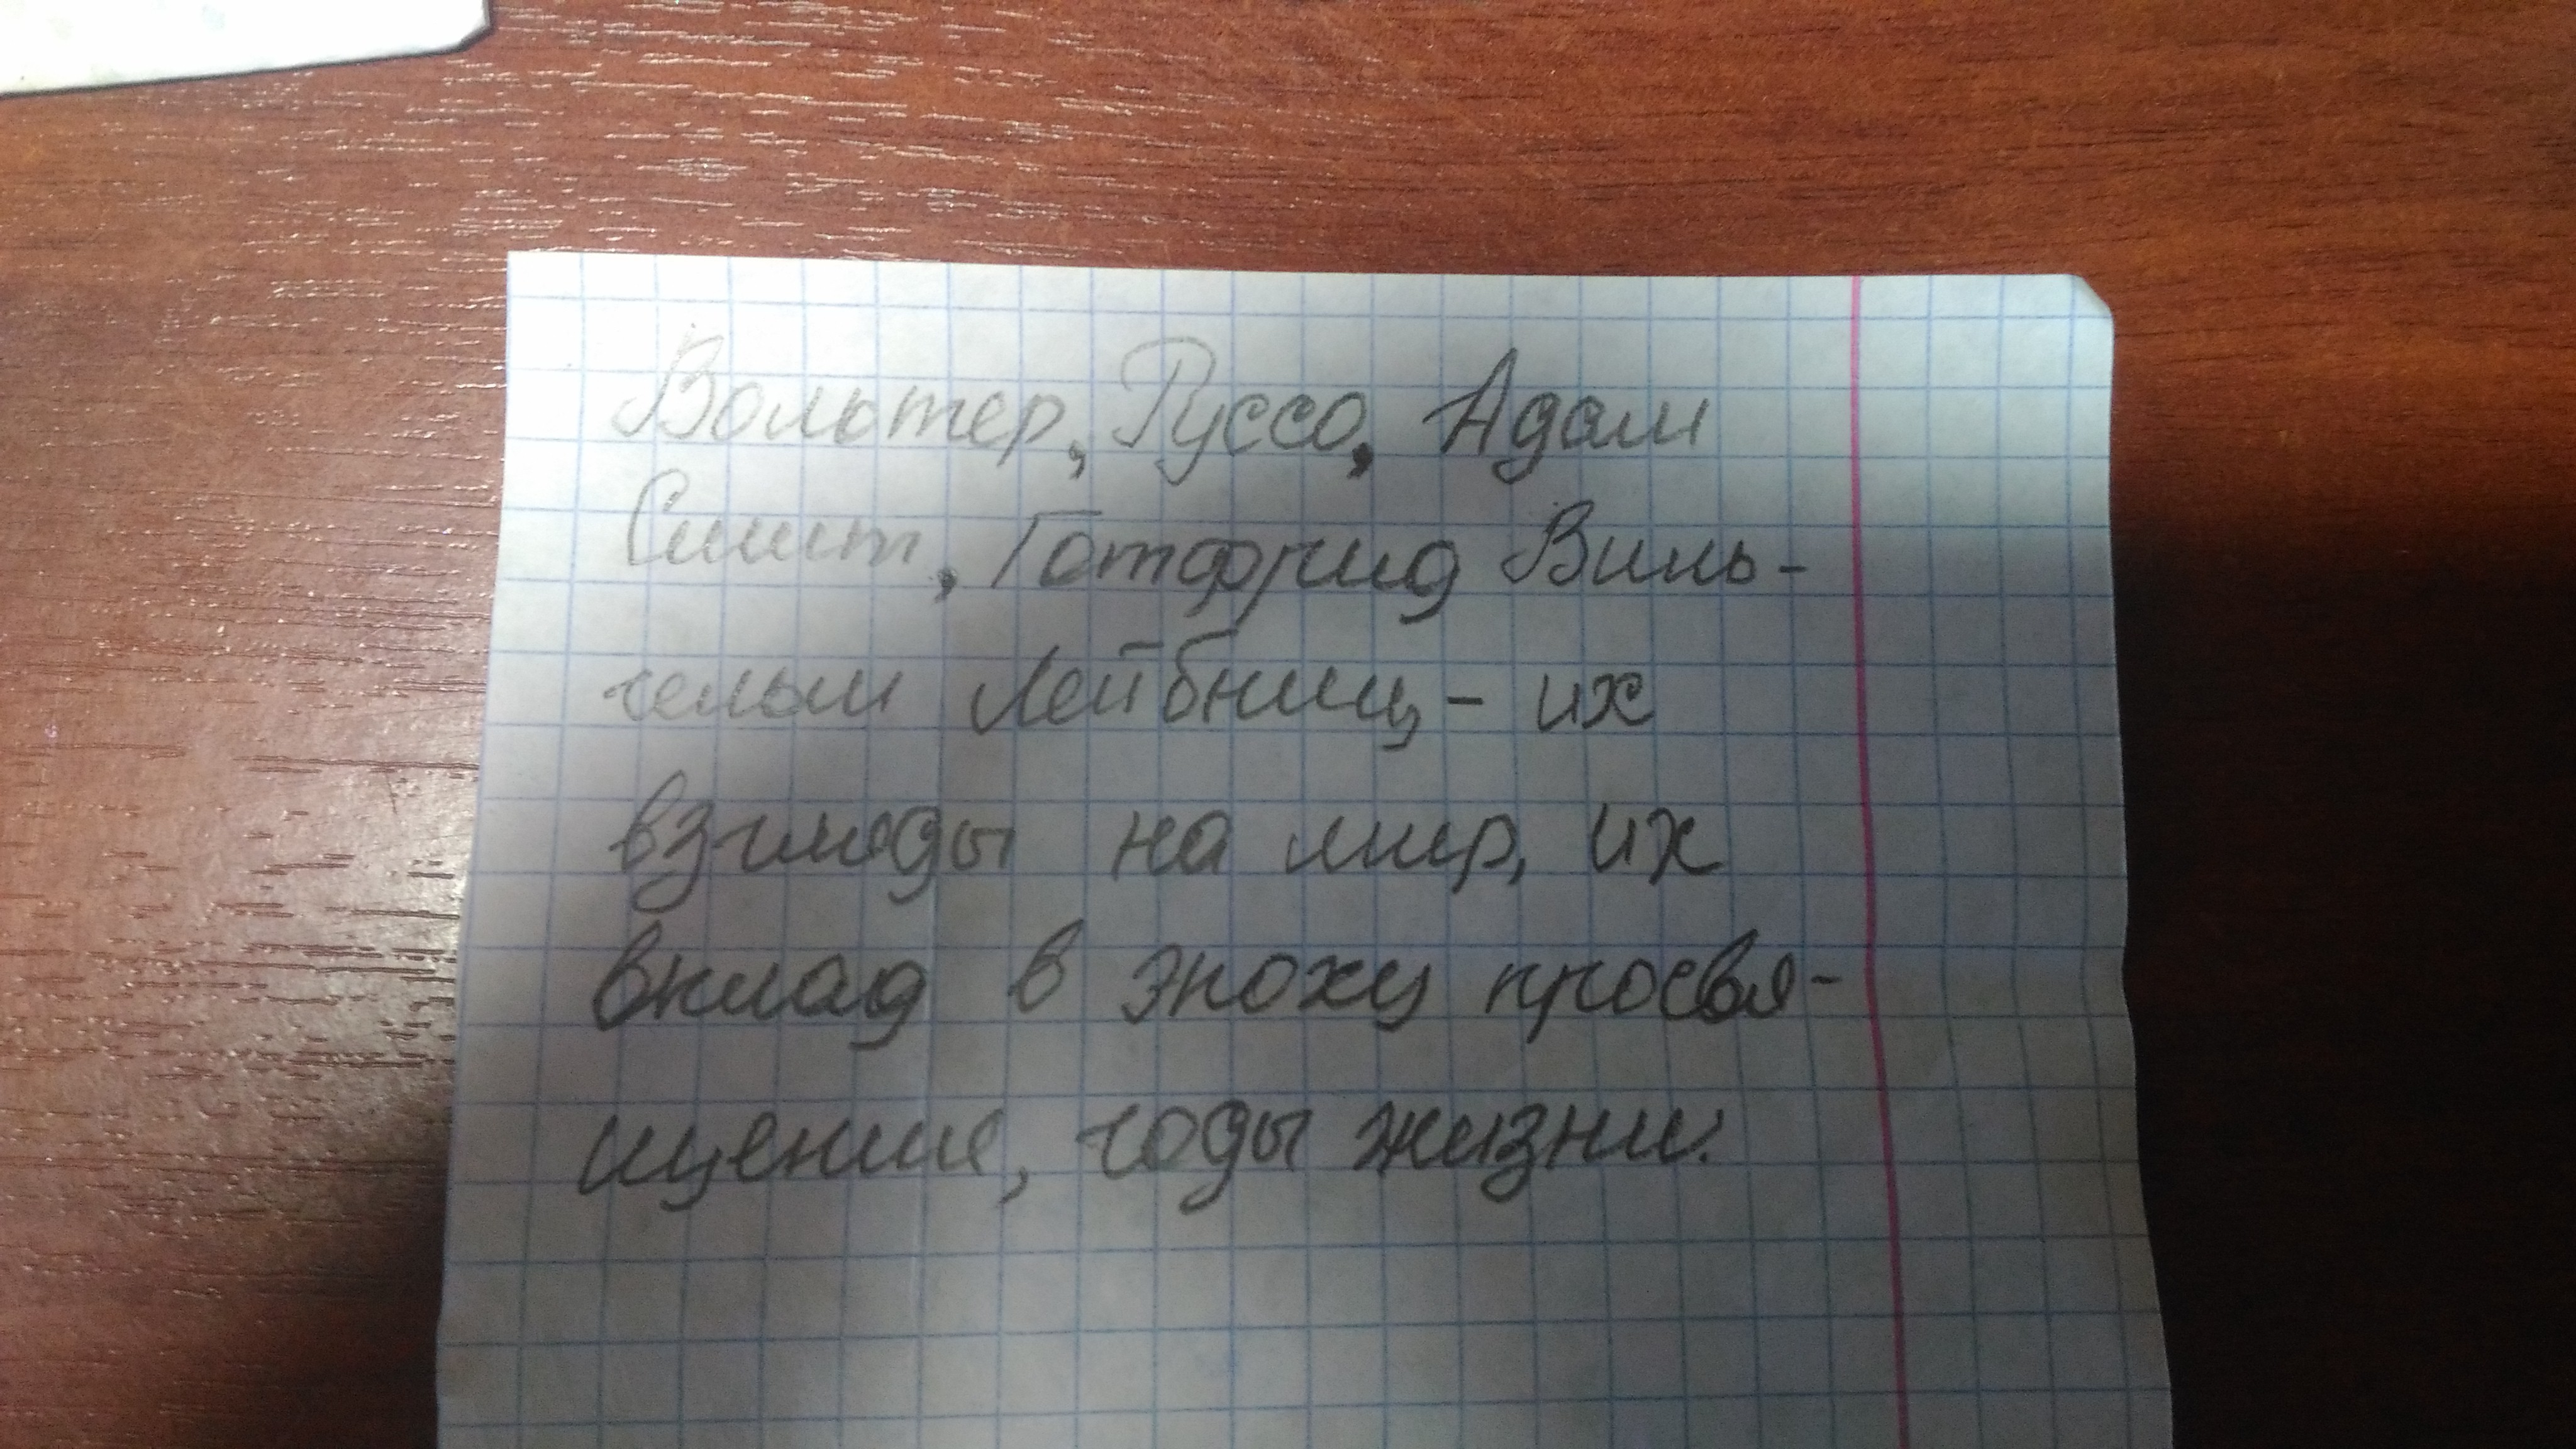 Вольтер, Руссо, Адам
Смит, Готфрид Виль-
гельм Лейбниц - их
взгляды на мир, их
вклад в эпоху просвя-
щения, годы жизни.